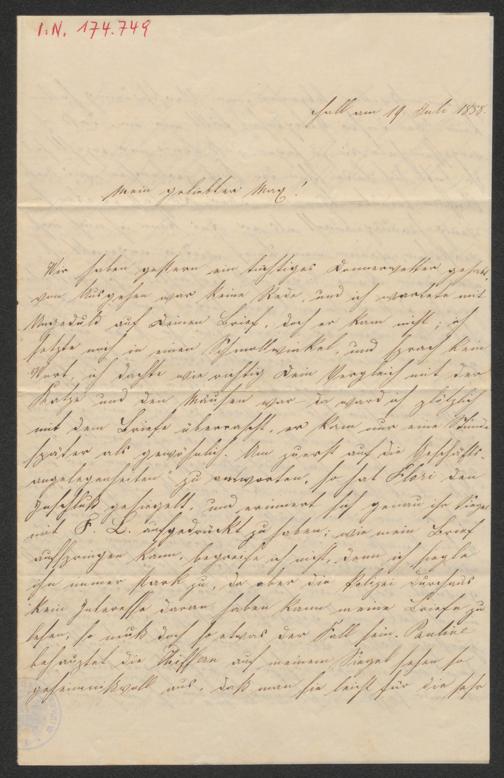 I.N. 174.749
Hall am 19 Juli 1858.
Mein geliebter Max!
Wir haben gestern ein tüchtiges Donnerwetter gehabt,
von Ausgehen war keine Rede, und ich wartete mit
Ungeduld auf Deinen Brief, doch er kam nicht; ich
setzte mich in einen Schmollwinkel, und sprach kein
Wort, ich dachte wie richtig Dein Vergleich mit der
Katze und den Mäusen war da ward ich plötzlich
mit dem Briefe überrascht, er kam nur eine Stunde
später als gewöhnlich. Um zuerst auf die Geschäfts-
angelegenheiten zu antworten, so hat Flori den
gesiegelt, und erinnert sich genau ihr Siegel
mit F. L. aufgedrückt zu haben; wie mein Brief
aufspringen kann, begreife ich nicht, denn ich siegle
ihn immer stark zu, da aber die Polizei durchaus
kein Interesse daran haben kann meine Briefe zu
lesen, so muß doch so etwas der Fall sein. Pauline
behauptet die Chiffern auf meinem Siegel sehen so
geheimnißvoll aus, daß man sie leicht für die sehr